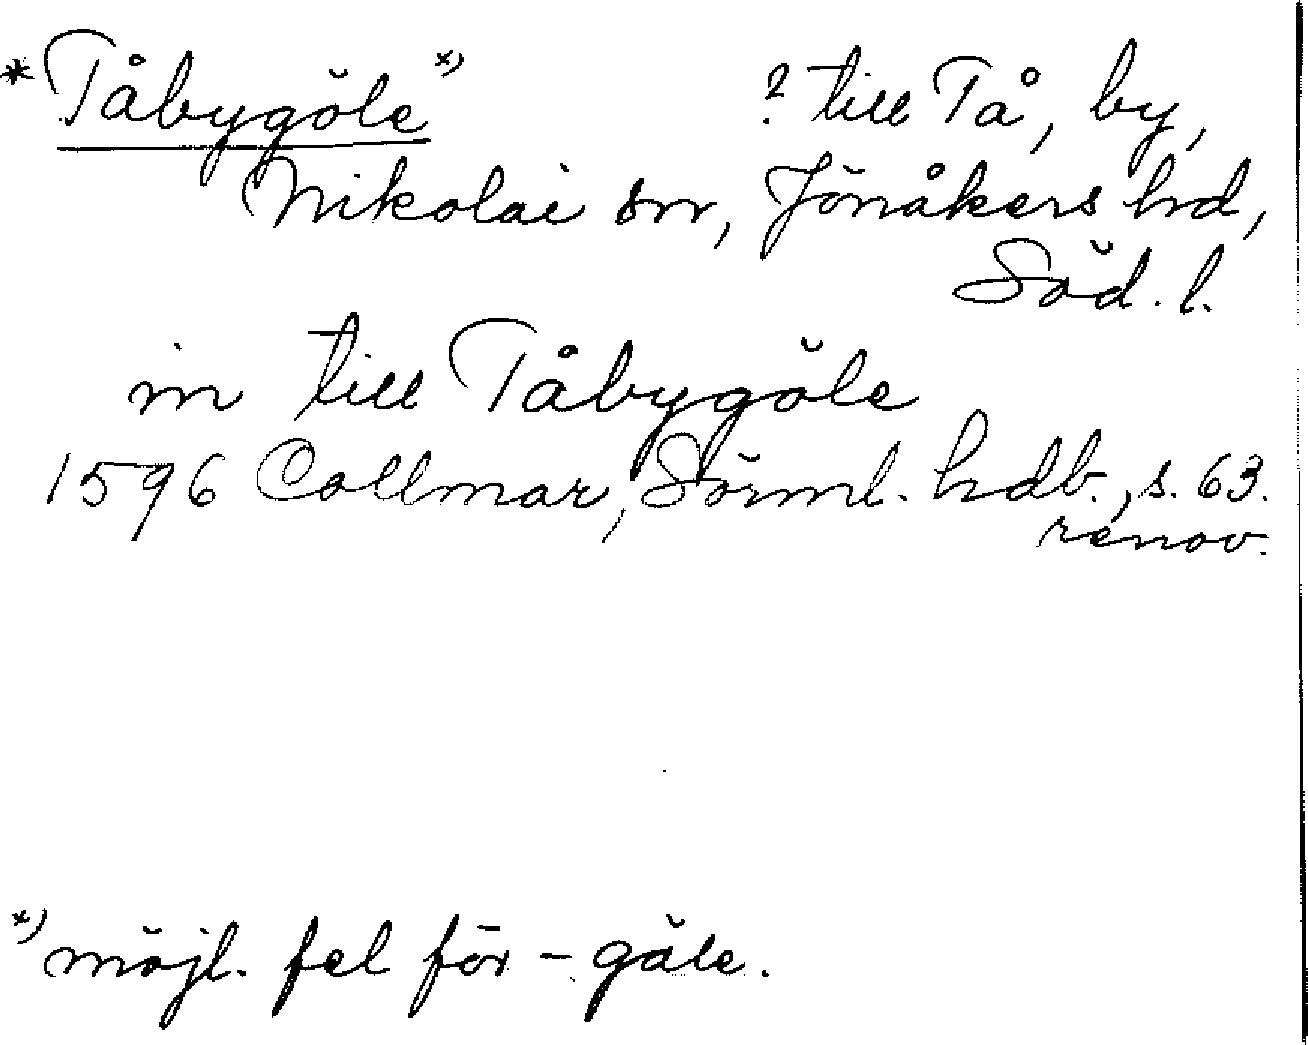 *Tåbygöle x) ? till Tå, by,
Nikolai sn, Jönåkers hd,
Söd. l.
in till Tåbygöle
1596 Collmar, Sörml. hdb., s. 63.
renov.
x) möjl. fel för - gäle.